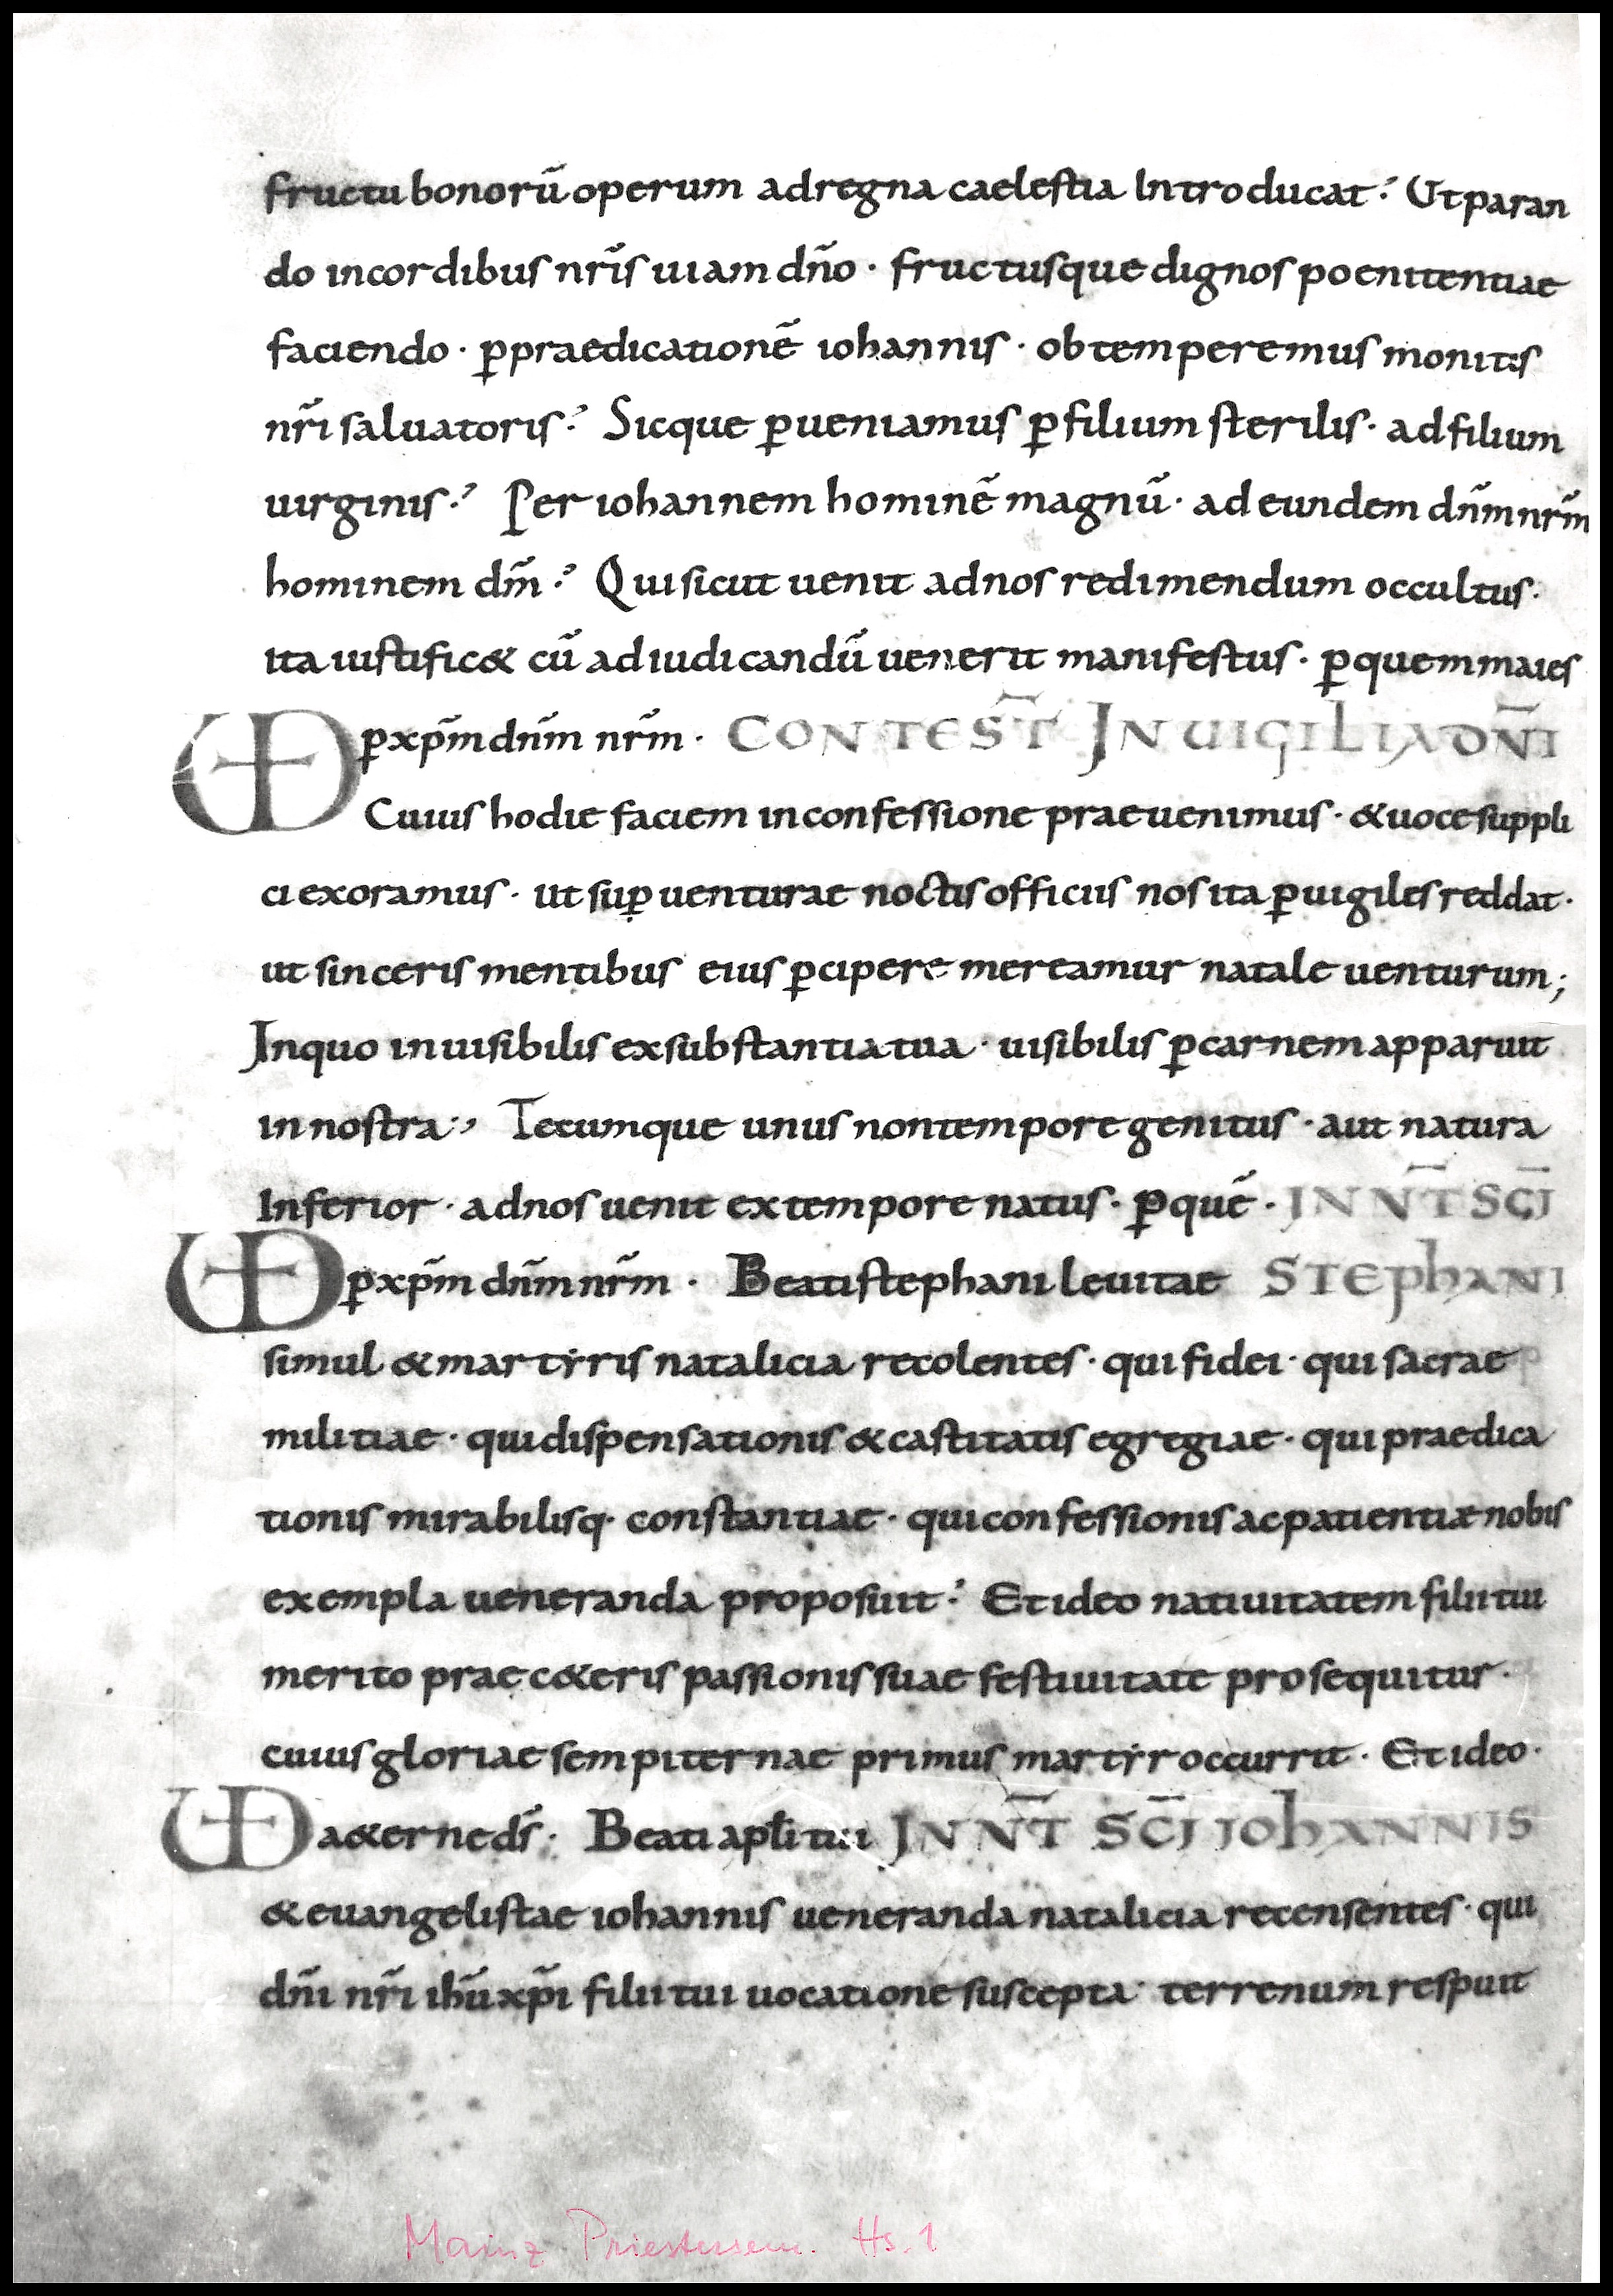 fructu bonorū operum ad regna caelestia Introducat⁏ Ut paran
do in cordibus nr̃is uiam dño · fructusque dignos poenitentiae
faciendo · ꝑ praedicationē iohannis · obtemperemus monitis
nr̃i saluatoris⁏ Sicque ꝑueniamus ꝑ filium sterilis · ad filium
uirginis⁏ Per iohannem hominē magnū · ad eundem dñm nr̃m
hominem dm̃⁏ Qui sicut uenit ad nos redimendum occultus ·
ita iustific& cū ad iudicandū uenerit manifestus · ꝑ quem maies
UD ꝑ xp̃m dñm nr̃m · CONTEST̄ IN UIGILIA DÑI
Cuius hodie faciem in confessione praeuenimus · & uoce suppli
ci exoramus · ut suꝑuenturae noctis officiis nos ita ꝑuigiles reddat ·
ut sinceris mentibus eius ꝑcipere mereamur natale uenturum;
In quo inuisibilis ex substantia tua · uisibilis ꝑ carnem apparuit
in nostra⁏ Tecumque unus non tempore genitus · aut natura
Inferior · ad nos uenit ex tempore natus · ꝑ quē · IN NT̄ SC̄I
UD ꝑ xp̃m dñm nr̃m · Beati stephani leuitae STEPhANI
simul & martẏris natalicia recolentes · qui fidei · qui sacrae
militiae · qui dispensationis & castitatis egregiae · qui praedica
tionis mirabilisq· constantiae · qui confessionis ac patientiæ nobis
exempla ueneranda proposuit⁏ Et ideo natiuitatem filii tui
merito prae c&eris passionis suae festiuitate prosequitur ·
cuius gloriae sempiternae primus martẏr occurrit · Et ideo ·
UD a&erne ds̃ · Beati apl̃i tui IN NT̄ SC̄I IOhANNIS
& euangelistae iohannis ueneranda natalicia recensentes · qui
dñi nr̃i ihũ xp̃i filii tui uocatione suscepta · terrenum respuit
Mainz Priestersem. Hs. 1